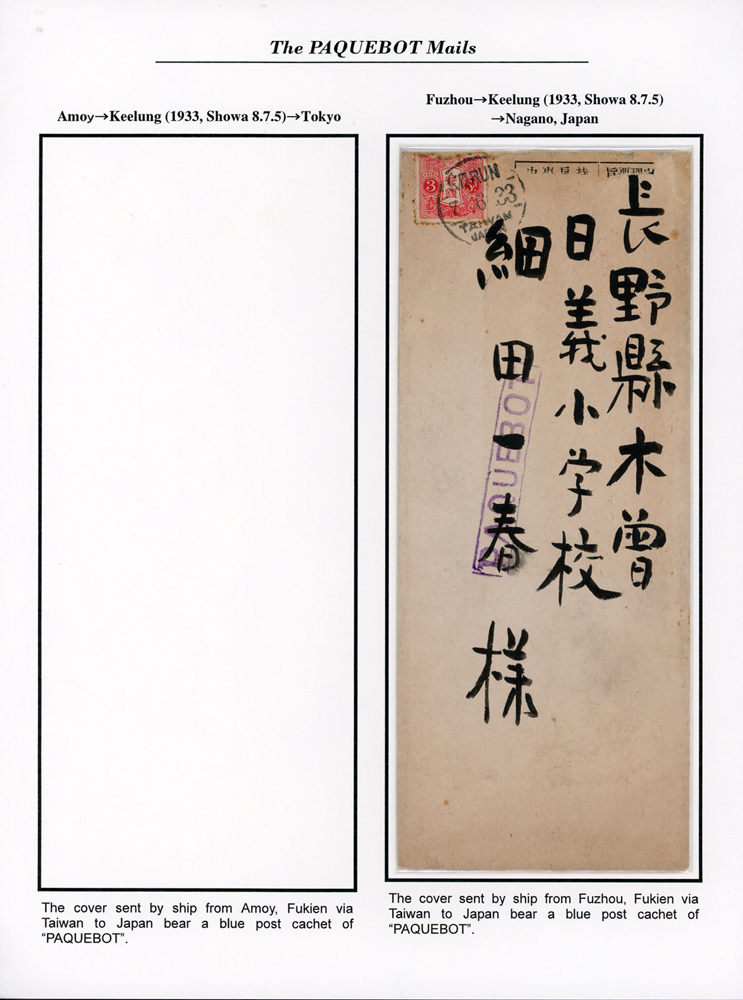 The PAQUEBOT Mails
Amoy→Keelung (1933, Showa 8.7.5)→Tokyo
Fuzhou→Keelung (1933, Showa 8.7.5)
→Nagano, Japan
3
33
TAIWAN
長野縣木曽
日義小学校
細田一春様
PAQUEBOT
The cover sent by ship from Amoy, Fukien via
Taiwan to Japan bear a blue post cachet of
“PAQUEBOT”.
The cover sent by ship from Fuzhou, Fukien via
Taiwan to Japan bear a blue post cachet of
“PAQUEBOT”.